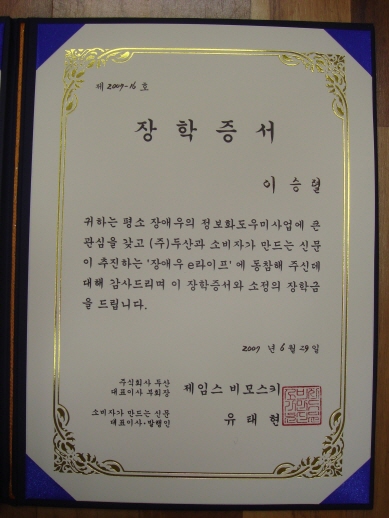 제 2009-16 호
장학증서
이승렬
귀하는 평소 장애우의 정보화도우미사업에 큰
관심을 갖고 (주)두산과 소비자가 만드는 신문
이 추진하는 '장애우 e라이프' 에 동참해 주신데
대해 감사드리며 이 장학증서와 소정의 장학금
을 드립니다.
2009 년 6 월 29 일
주식회사 두산
대표이사 부회장 제임스 비모스키
소비자가 만드는 신문
대표이사·발행인 유태현